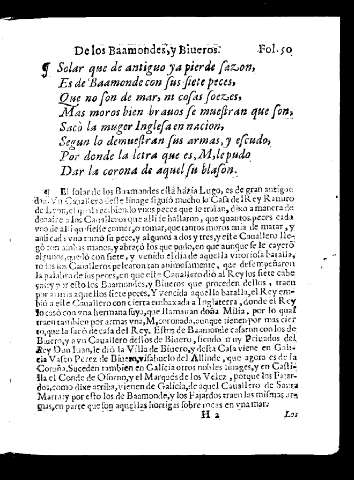 De los Baamondes, y Biueros. Fol. 50
¶ Solar que de antiguo ya pierde sazon,
Es de Baamonde con sus siete peces,
Que no son de mar, ni cosas soezes,
Mas moros bien brauos se muestran que son,
Sacò la muger Inglesa en nacion,
Segun lo demuestran sus armas, y escudo,
Por donde la letra que es, M, le pudo
Dar la corona de aquel su blason.
¶ El solar de los Baamondes està hàzia Lugo, es de gran antigue
dad. Vn Cauallero deste linage siguiò mucho la Casa del Rey Ramiro
de Leon, el qual recibien lo vnos peces que le traian, dixo a manera de
donaire a los Caualleros que alli se hallaron, que quantos peces cada
vno de alli quisiesse comer, o tomar, que tantos moros auia de matar, y
assi cada vno tomò su pece, y algunos a dos y tres, y este Cauallero lle-
gò con ambas manos, y abraçò los que pudo, en que aunque se le cayerõ
algunos, quedò con siete, y venido el dia de aquella vitoriosa batalla
todos los Caualleros pelearon tan animosamente, que desempeñaron
la palabra de los peces, en que este Cauallero diò al Rey los siete cabe
ças, y por esto los Baamondes, y Biueros que proceden dellos, traen
por armas aquellos siete peces. Y vencida aquella batalla, el Rey em-
biò a este Cauallero con cierta embaxada a Inglaterra, donde el Rey
lo casò con vna hermana suya, que llamauan doña Misia, por lo qual
traen tambien por armas vna, M, coronada, aunque tienen por mas cier
to, que la sacò de casa del Rey. Estos de Baamonde casaron con los de
Biuero, y a vn Cauallero destos de Biuero, siendo muy Priuados del
Rey Don Iuan, le diò la Villa de Biuero, y desta Casa viene en Gali-
cia Vasco Perez de Biuero, visabuelo del Allinde, que agora es de la
Coruña. Suceden tambien en Galicia otros nobles linages, y en Casti-
lla el Conde de Osorno, y el Marques de los Velez, porque los Fajar-
dos, como dixe arriba, vienen de Galicia, de aquel Cauallero de Santa
Marta; y por esto los de Baamonde, y los Fajardos traen las mismas ar
mas, en parte que son aquellas hortigas sobre rocas en vna mar.
H 2 Los